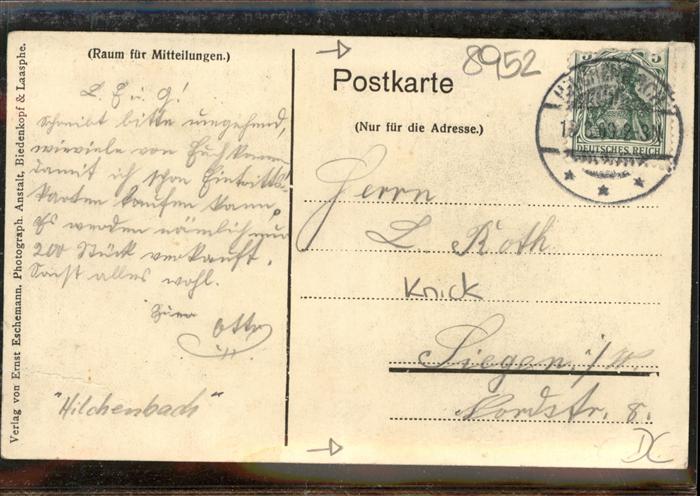 (Raum für Mitteilungen.)
L. E. u. G!
Schreibt bitte umgehend,
wieviele von Euch kommen,
damit ich schon Eintritts-
karten kaufen kann.
Es werden nämlich nur
200 Stück verkauft.
Sonst alles wohl.
Euer
Otto
"Hilchenbach"
Verlag von Ernst Eschemann, Photograph. Anstalt, Biedenkopf & Laasphe.
8952
Postkarte
(Nur für die Adresse.)
5 5
DEUTSCHES REICH
Herrn
L Roth
Knick
Siegen i/W.
Nordstr. 8.
DC